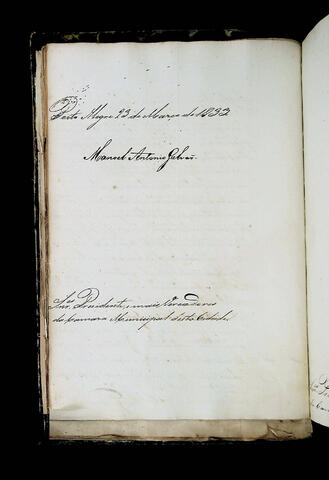 Porto Alegre 23 de Março de 1833
Manoel Antonio Galvaõ
Snr.es Presidente, e mais Vereadores
da Camara Municipal desta Cidade.